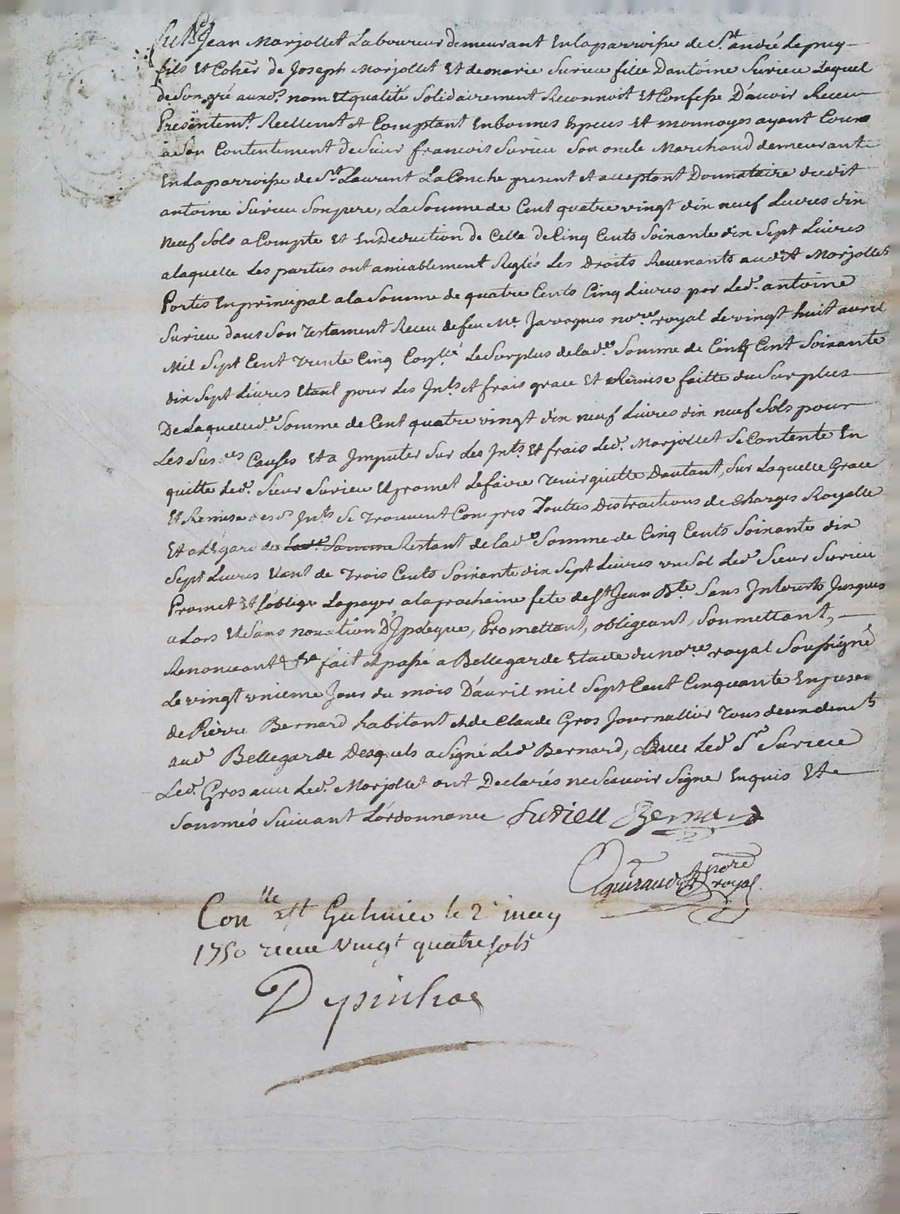 Jean Marjollet Laboureur demeurant En la parroisse de St. andré Le puy
fils Et Coher de Joseph Marjollet Et de marie Surieu fille D'antoine Surieu Lequel
de Son gré aux d. nom Et qualité Solidairement Reconnoit Et Confesse D'avoir Receu
Présentemt. Reellemt Et Comptant En bonnes Especes Et monnoyes ayant Cours
a Son Contentement de Sieur francois Surieu Son oncle Marchand demeurant
En la parroisse de St. Laurent La Conche present Et acceptant Donnataire du dit
antoine Surieu Son pere, La Somme de Cent quatre vingt dix neuf Livres dix
neuf Sols a Compte Et En Deduction de Celle de Cinq Cents Soixante dix Sept Livres
a laquelle Les parties ont amiablement Reglés Les Droits Revenants aud. Marjollet
Portes En principal a la Somme de quatre Cents Cinq Livres par Led. antoine
Surieu dans Son Testament Receu de feu Me. Javogues nore. royal Le vingt huit avril
Mil Sept Cent Trente Cinq Le Surplus de lad. Somme de Cinq Cent Soixante
dix Sept Livres Etant pour Les Jnts. Et frais grace Et Remise faitte du Surplus
De Laquelle d. Somme de Cent quatre vingt dix neuf Livres dix neuf Sols pour
Les Sus des Causes Et a Jmputer Sur Les Jnts. Et frais Led. Marjollet Se Contente En
quitte Led. Sieur Surieu Et promet Le faire Tenir quitte Dautant, Sur Laquelle Grace
Et Remise des d. Jnts Se Trouvent Compris Toutes Distractions de Charges Royalle
Et a l'Egard du Restant de lad. Somme de Cinq Cents Soixante dix
Sept Livres Etant de Trois Cents Soixante dix Sept Livres un Sol Led. Sieur Surieu
Promet Et S'oblige La payer a la prochaine fete de St. Jean Bte Sans Jnterets Jusques
a Lors Et Sans novation D'Jpoteque, Promettant, obligeant, Soumettant,
Renonceant fait Et passé a Bellegarde Etude du nore. royal Soussigné
Le vingt unieme Jour du mois D'avril mil Sept Cent Cinquante En presen
de Pierre Bernard habitant Et de Claude Gros Journallier Tous deux
aud. Bellegarde Desquels a Signé Led. Bernard, avec Led. Sr. Surieu
Led. Gros avec Led. Marjollet ont Declarés ne Scavoir Signe Enquis Et
Sommés Suivant L'ordonnance Surieu Bernard
nore
royal
Conlle a St Galmier le 2 may
1750 receu vingt quatre Sols